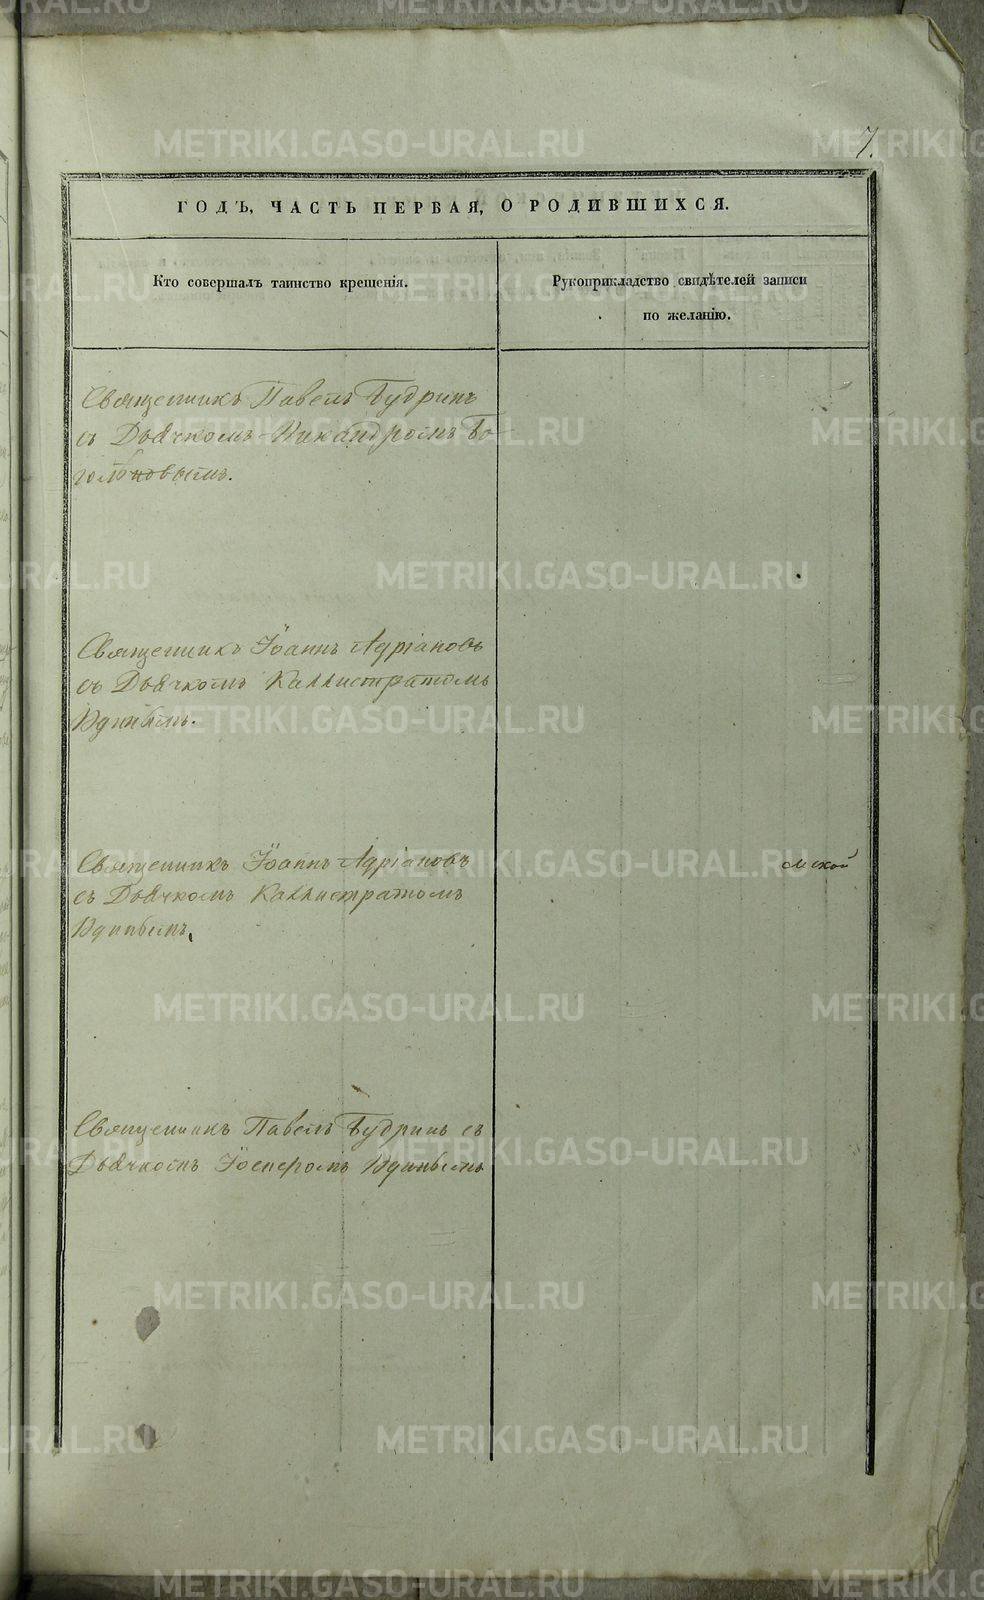 7.
ГОДЪ, ЧАСТЬ ПЕРВАЯ, О РОДИВШИХСЯ.
Кто совершалъ таинство крещенія.
Рукоприкладство свидѣтелей записи
по желанію.
Священникъ Павелъ Будринъ
съ Дьячкомъ Никандромъ Бо-
голюбовымъ.
Священникъ Іоаннъ Адріановъ
съ Дьячкомъ Каллистратомъ
Удинымъ.
Священникъ Іоаннъ Адріановъ
съ Дьячкомъ Каллистратомъ
Удинымъ.
мской
Священникъ Павелъ Будринъ съ
Дьячкомъ Іосифомъ Удинымъ
METRIKI.GASO-URAL.RU